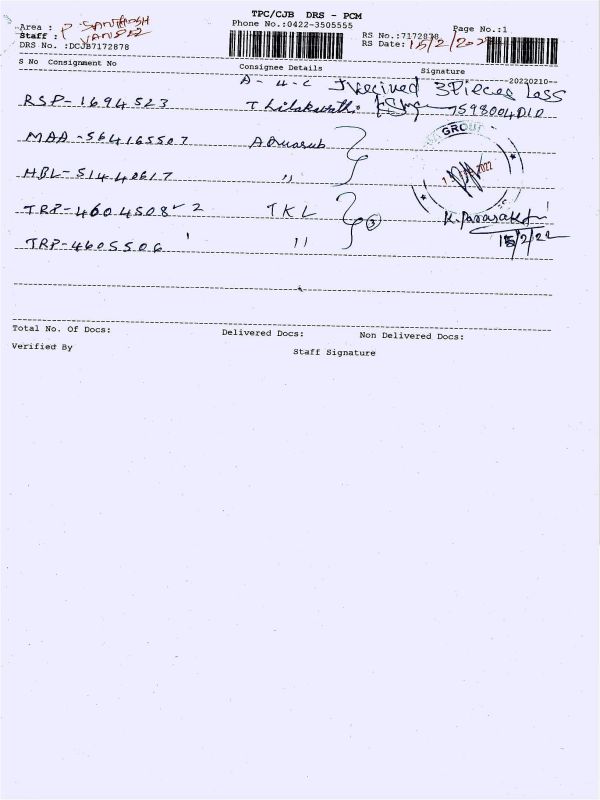 TPC/CJB DRS - PCM
Phone No.:0422-3505555
Page No.:1
Area : P SANTHOSH
Staff :
RS No.:7172878
DRS No. :DCJB7172878
RS Date: 15/2/2022
S No Consignment No Consignee Details Signature
20220210
A - 4 - C I recived 3 Pieces Less
RSP-1694523 Thilakavathi 7598004010
MAA-564165507 Aquasub
GROUP
HBL-51440617 "
2022
TRP-4604508 2 TKL 3
TRP-4605506 "
15/2/22
Total No. Of Docs: Delivered Docs: Non Delivered Docs:
Verified By Staff Signature